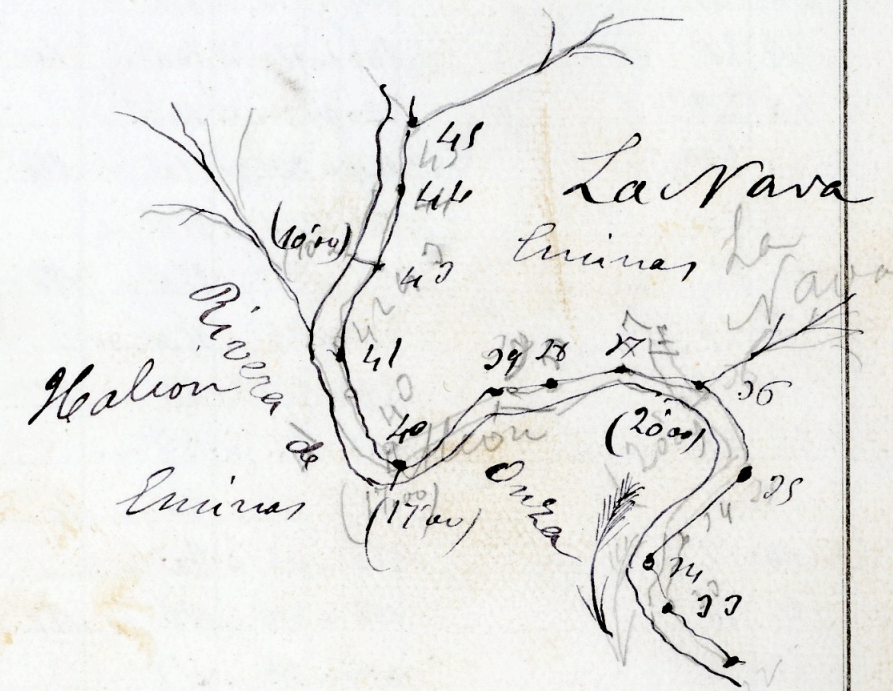 45
44
La Nava
(10'00)
43
Encinas
Rivera
41
39 38 37
36
Halcon
40
(20'00)
de
Onza
35
Encinas
(17'00)
34
33